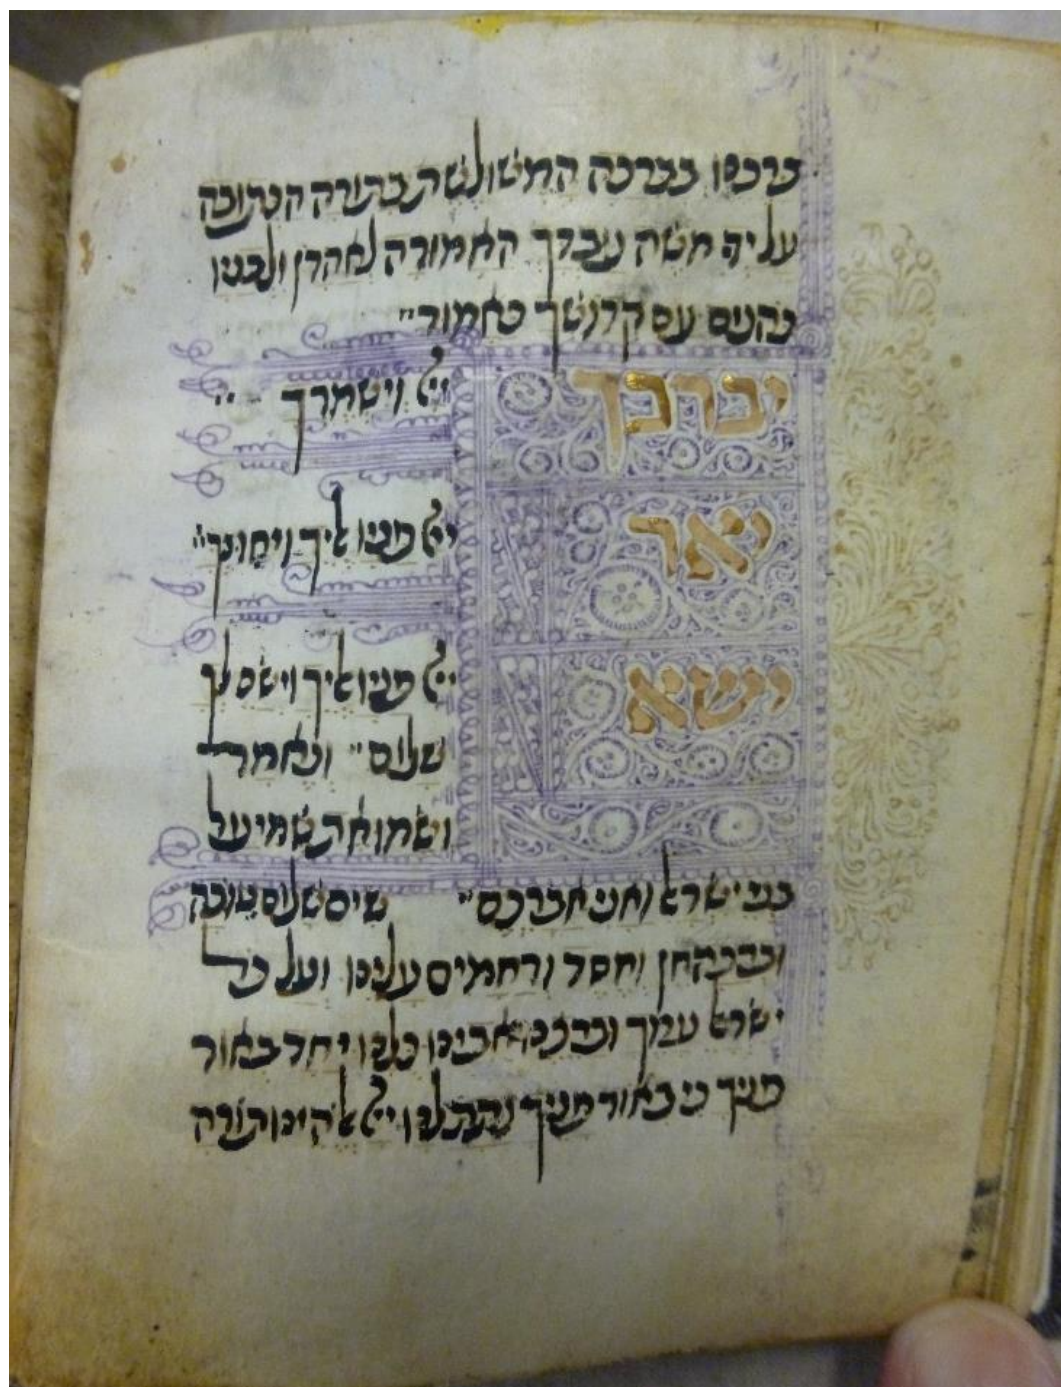 ברכנו בברכה המשולשת בתורה הכתובה
על ידי משה עבדך האמורה לאהרן ולבניו
כהנים עם קדושך כאמור״
יברכך ייי וישמרך ״
יאר ייי פניו אליך ויחונך״
ישא ייי פניו אליך וישם לך
שלום״ ונאמר
ושמו את שמי על
בני ישראל ואני אברכם״ שים שלום טובה
וברכה חן וחסד ורחמים עלינו ועל כל
ישראל עמך וברכנו אבינו כלנו יחד באור
פניך כי באור פניך נתת לנו ייי אלהינו תורה